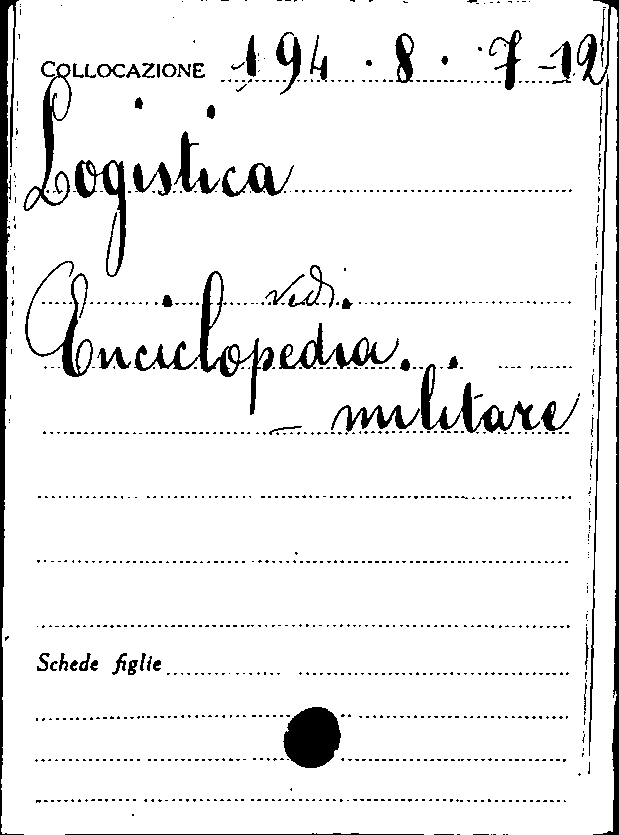 COLLOCAZIONE 194.8.7-12
Logistica
vedi
Enciclopedia
- militare
Schede figlie